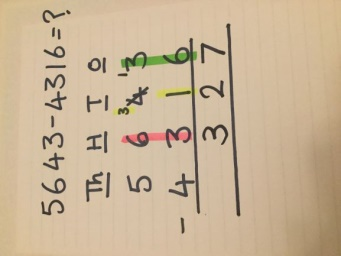 5643-4316=?
Th H T O
5 6 ³4 ¹3
- 4 3 1 6
3 2 7